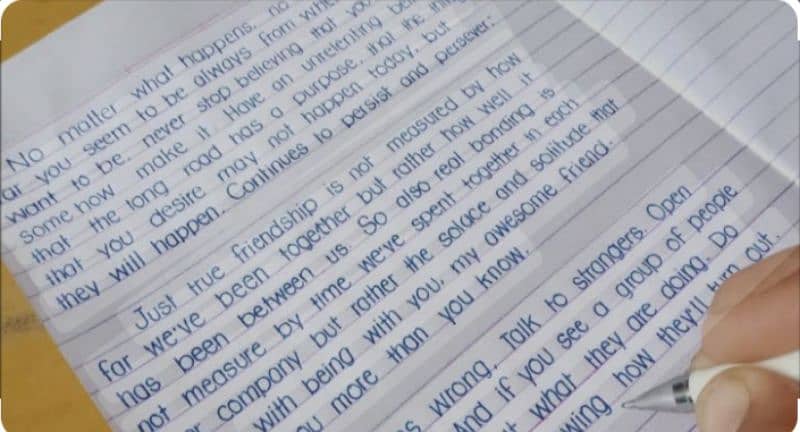 No matter what happens, no
ar you seem to be always from
want to be, never stop believing that you
somehow make it. Have an unrelenting
that the long road has a purpose, that the
that you desire may not happen today, but
they will happen. Continues to persist and persever.
Just true friendship is not measured by how
far we've been together but rather how well it
has been between us. So also real bonding is
not measure by time we've spent together in each
company but rather the solace and solitude that
with being with you, my awesome friend.
more than you know.
wrong. Talk to strangers. Open
And if you see a group of people
what they are doing. Do
how they'll turn out.